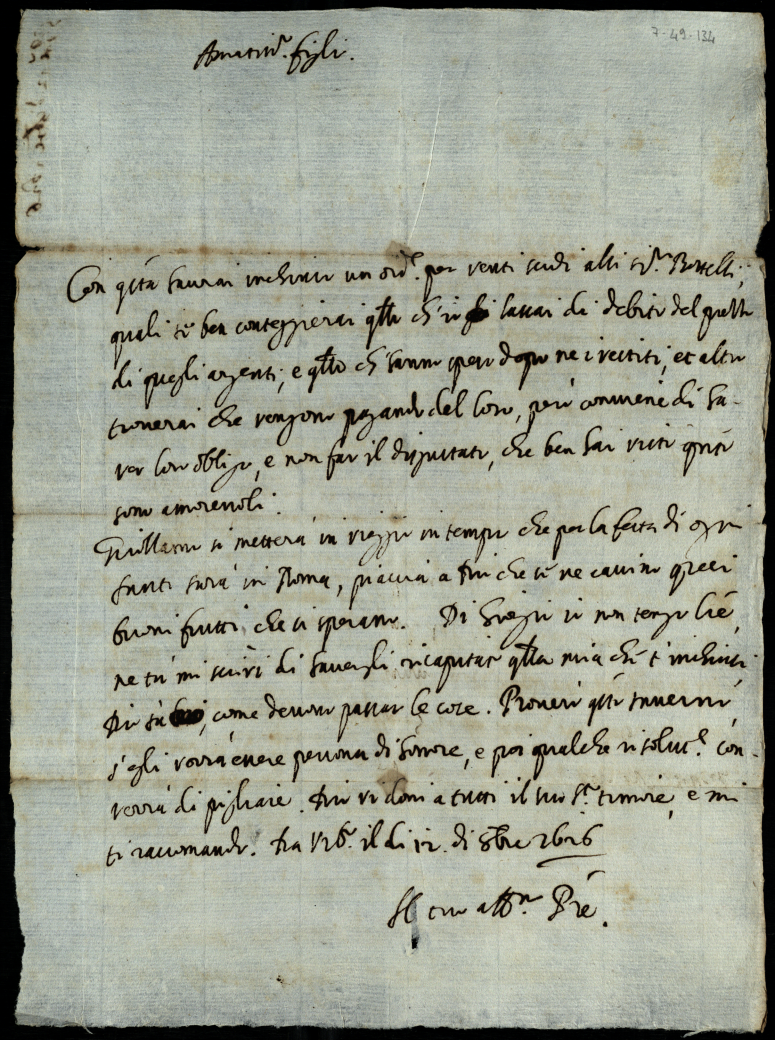 7-49-134
Amatiss.º figli.
Con q.ta havrai inchiuso un ord.e per venti scudi alli s.ri Bettelli,
quali se ben conteggierai q.llo ch'io lassai di debito del
di quegli argenti, e q.llo ch'hanno speso dopo ne i vestiti, et altro
troverai che vengono pagando del loro, però conviene di ha-
ver loro obligo, e non far il disputate, che ben sai tutti q.nti
sono amorevoli.
si metterà in viaggio in tempo che per la festa di ogni
santi sarà in Roma, piaccia a Dio che se ne cavino quei
buoni frutti che si sperano. Di io non tengo l.re,
ne tu mi scrivi di havergli ricapitate q.lla mia ch' t'inchiusi.
Dio sà, come devono passar le cose. Proverò q.to inverno,
s'egli vorrà essere persona di honore, e poi qualche risolut.e con-
verrà di pigliare. Dio vi doni a tutti il suo s.to timore, e mi
ti raccomando. Da Urb.o il di 12. di 8bre 1626
Il tuo aff.mo P.re.